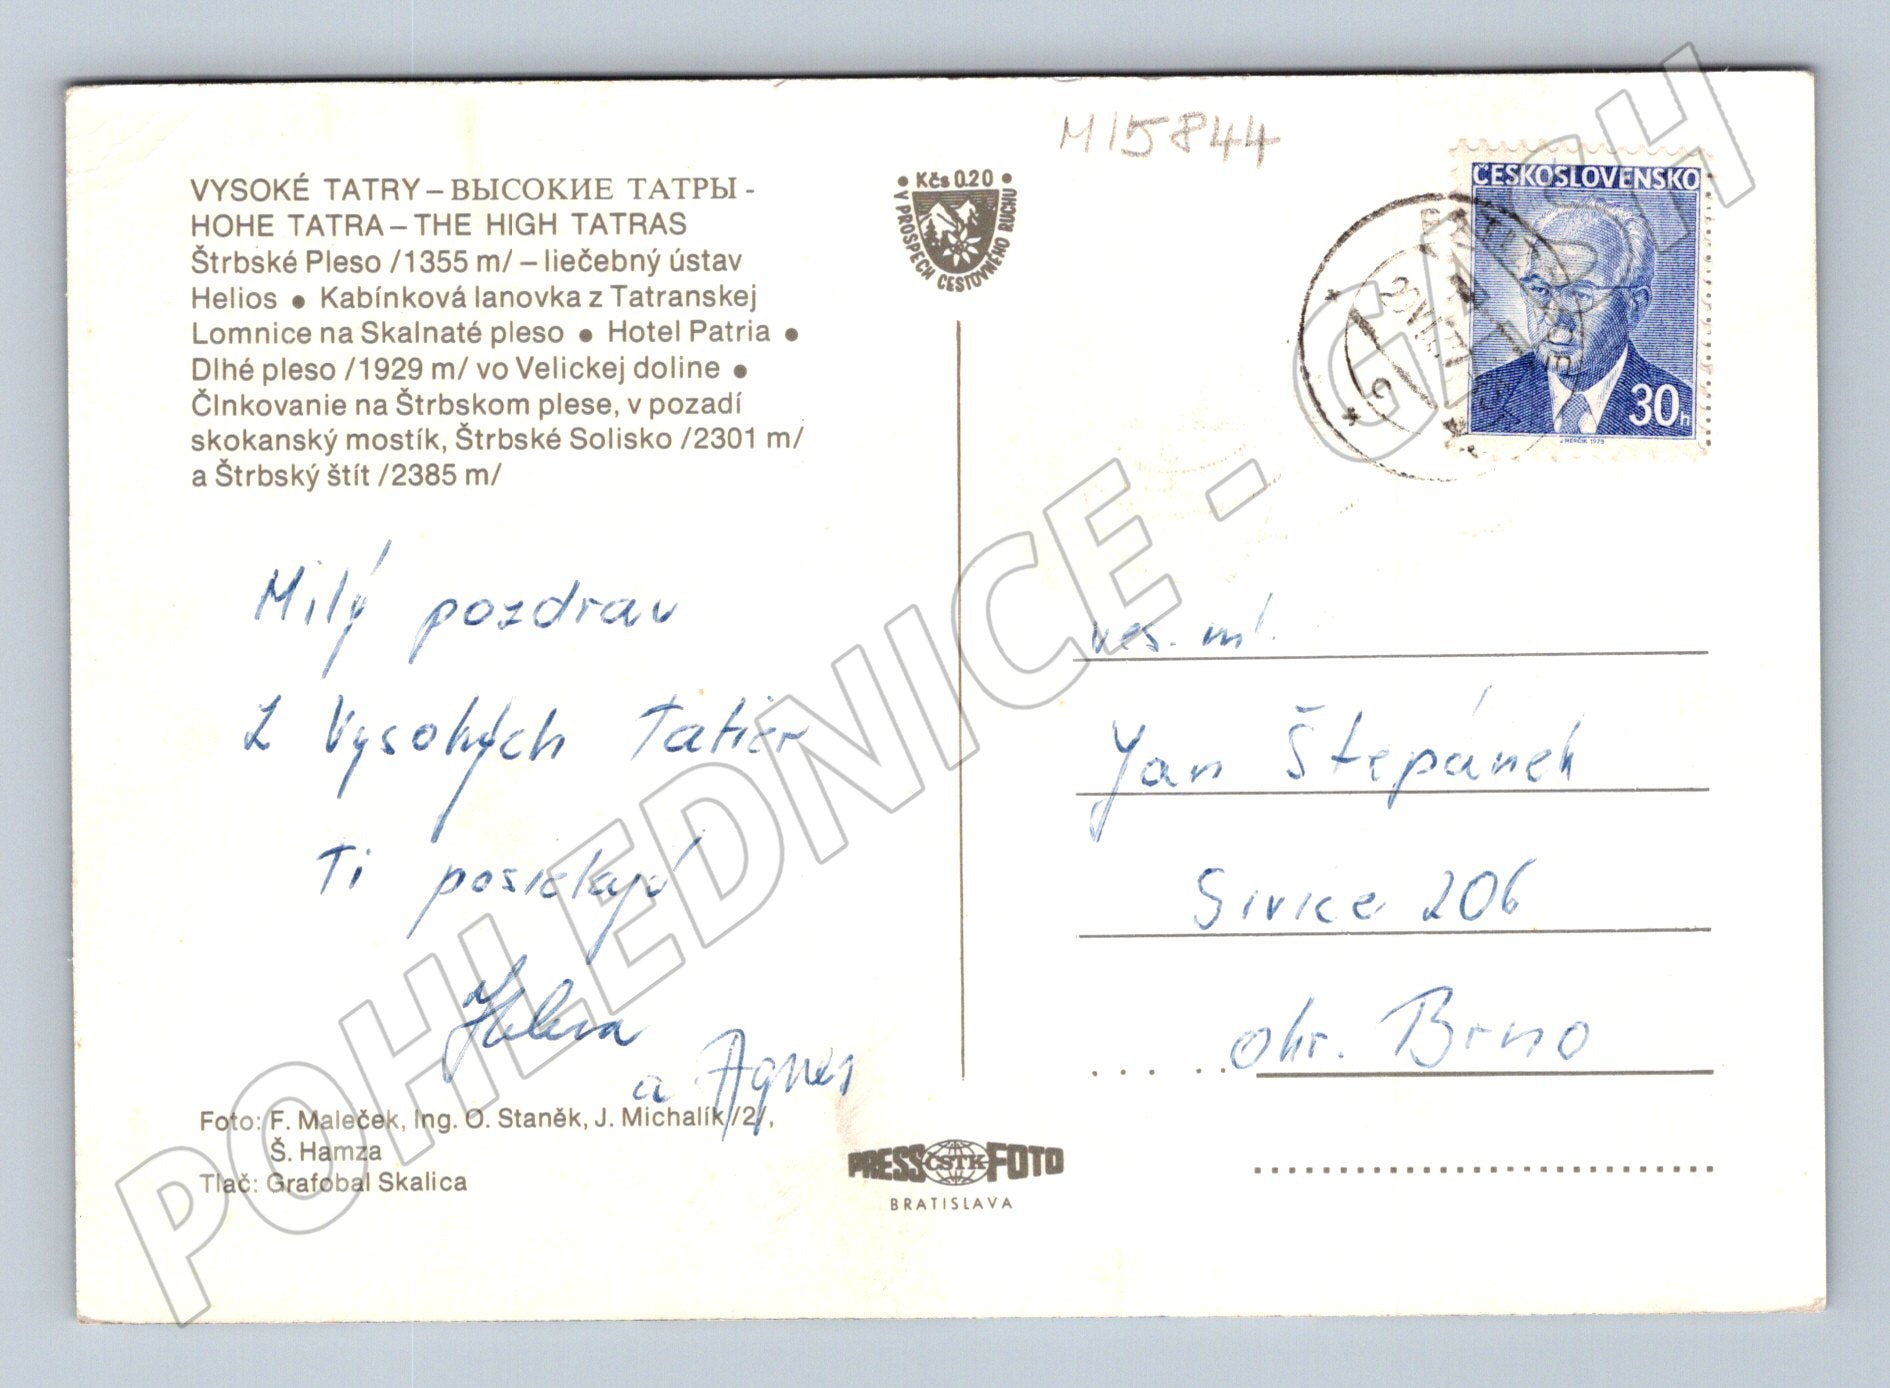 M15844
VYSOKÉ TATRY – ВЫСОКИЕ ТАТРЫ -
HOHE TATRA – THE HIGH TATRAS
Štrbské Pleso /1355 m/ – liečebný ústav
Helios • Kabínková lanovka z Tatranskej
Lomnice na Skalnaté pleso • Hotel Patria •
Dlhé pleso /1929 m/ vo Velickej doline •
Člnkovanie na Štrbskom plese, v pozadí
skokanský mostík, Štrbské Solisko /2301 m/
a Štrbský štít /2385 m/
• Kčs 0.20 •
V PROSPECH CESTOVNÉHO RUCHU
ČESKOSLOVENSKO
30h
J. HERČÍK 1975
Milý pozdrav
z Vysokých Tatier
Ti posielajú
Helena
a Agnes
ves. ml.
Jan Štěpánek
Sivice 206
okr. Brno
Foto: F. Maleček, Ing. O. Staněk, J. Michalík /2/,
Š. Hamza
Tlač: Grafobal Skalica
PRESS ČSTK FOTO
BRATISLAVA
POHLEDNICE - GASH